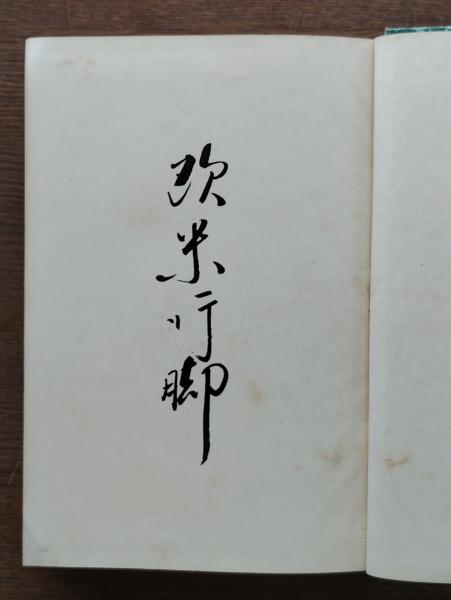 欧米行脚